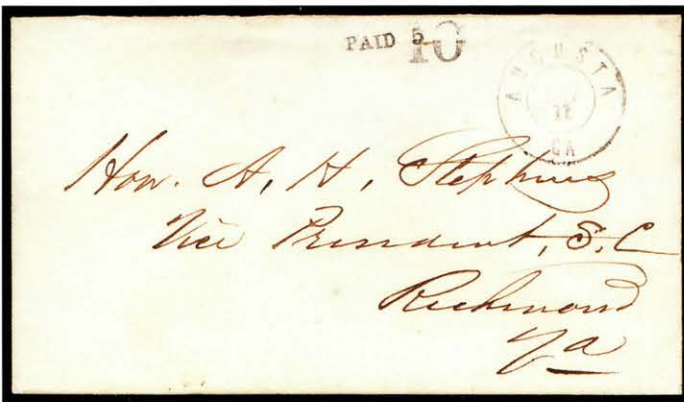 PAID 5
10
AUGUSTA
11
GA
Hon. A. H. Stephens
Vice President, S. C
Richmond
Va